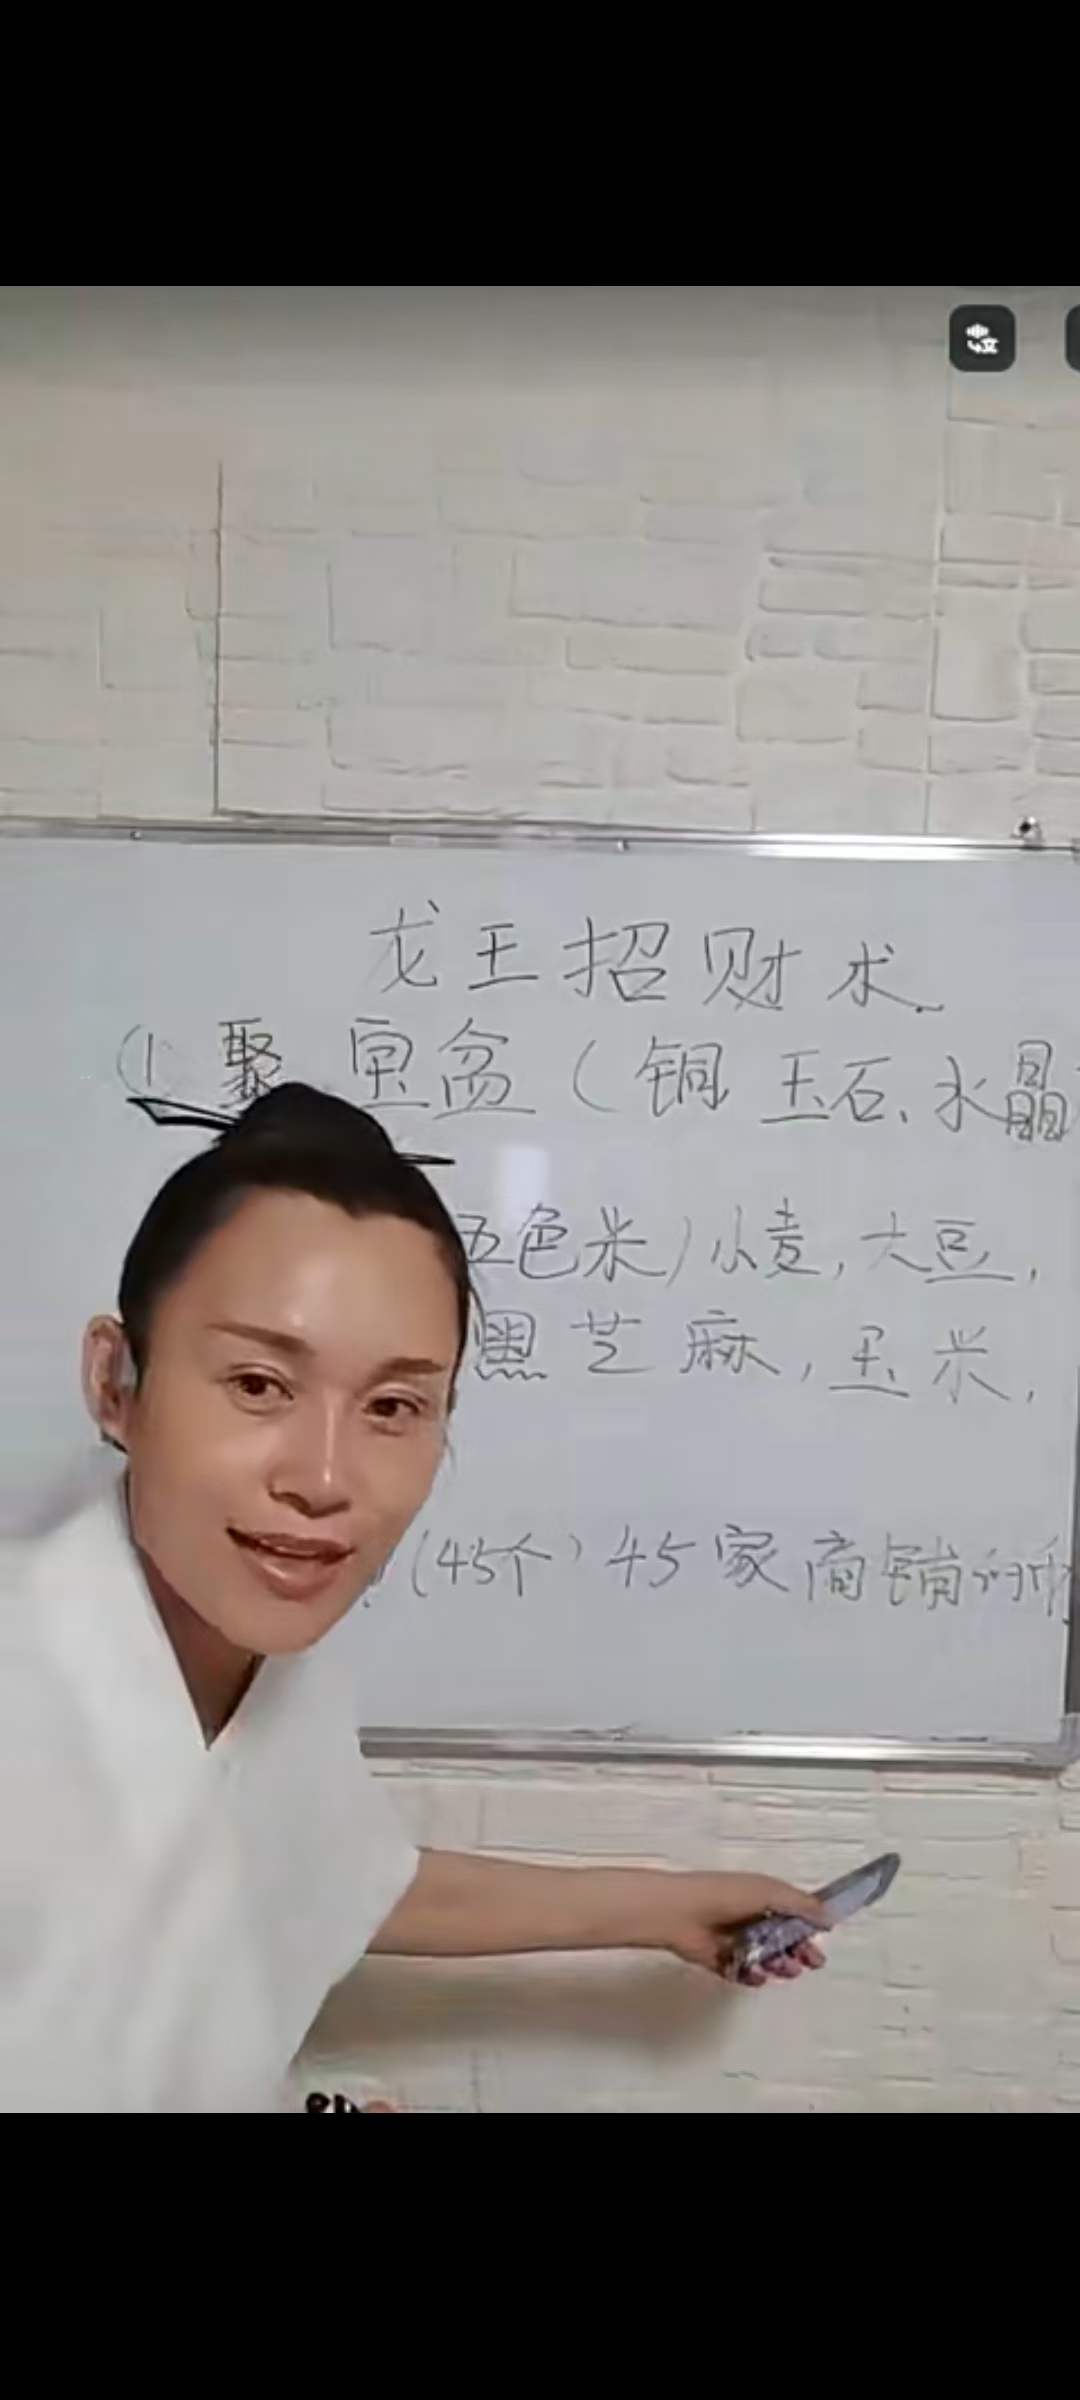 龙王招财术.
① 聚宝盆（铜 玉石、水晶
五色米）小麦，大豆，
黑芝麻，玉米，
（45个）45家商铺的